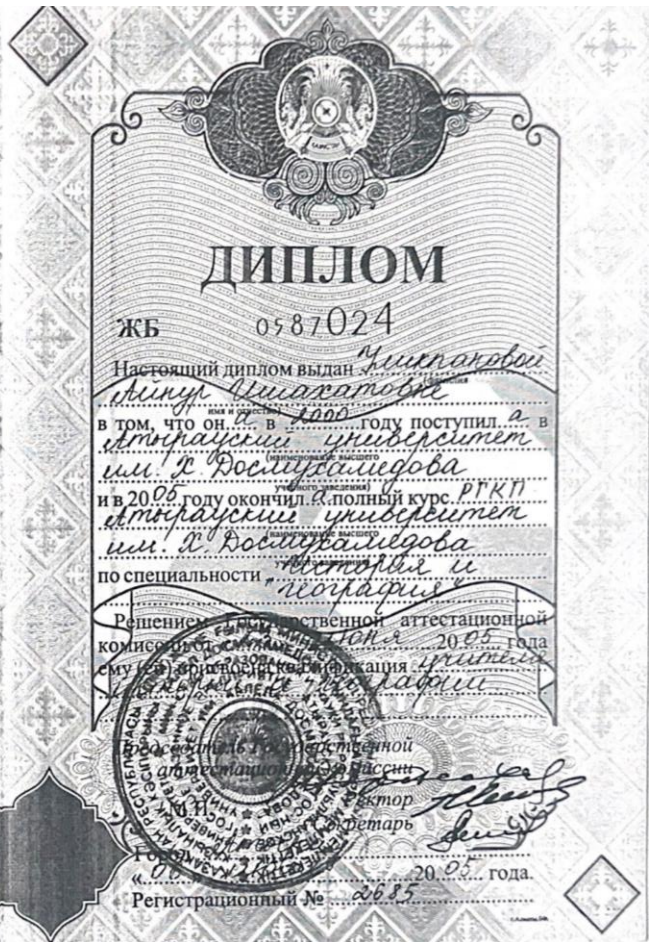 ДИПЛОМ
ЖБ 0587024
Настоящий диплом выдан
(фамилия
Айнур
имя и отчество)
в том, что он а в 2000 году поступил а в
Атырауский университет
(наименование высшего
им. Х. Досмухамедова
учебного заведения)
и в 2005 году окончил а полный курс РГКП
Атырауский университет
(наименование высшего
им. Х. Досмухамедова
учебного заведения)
по специальности "история и
география"
Решением Государственной аттестационной
комиссии от июня 2005 года
ему (ей) присвоена квалификация учителя
истории и географии
Председатель Государственной
аттестационной комиссии
Ректор
Секретарь
2005 года.
Регистрационный № 2685